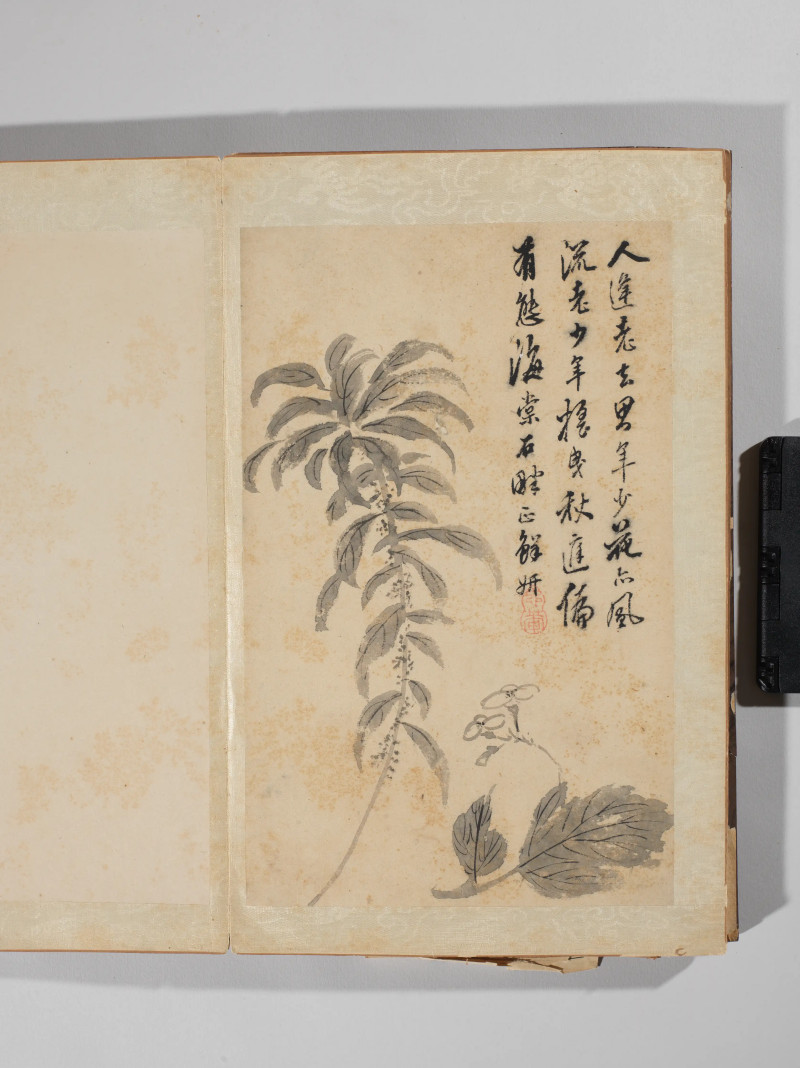 人逢老去思年少花亦風
流老少年搖曳秋庭偏
有態海棠石畔正鮮妍